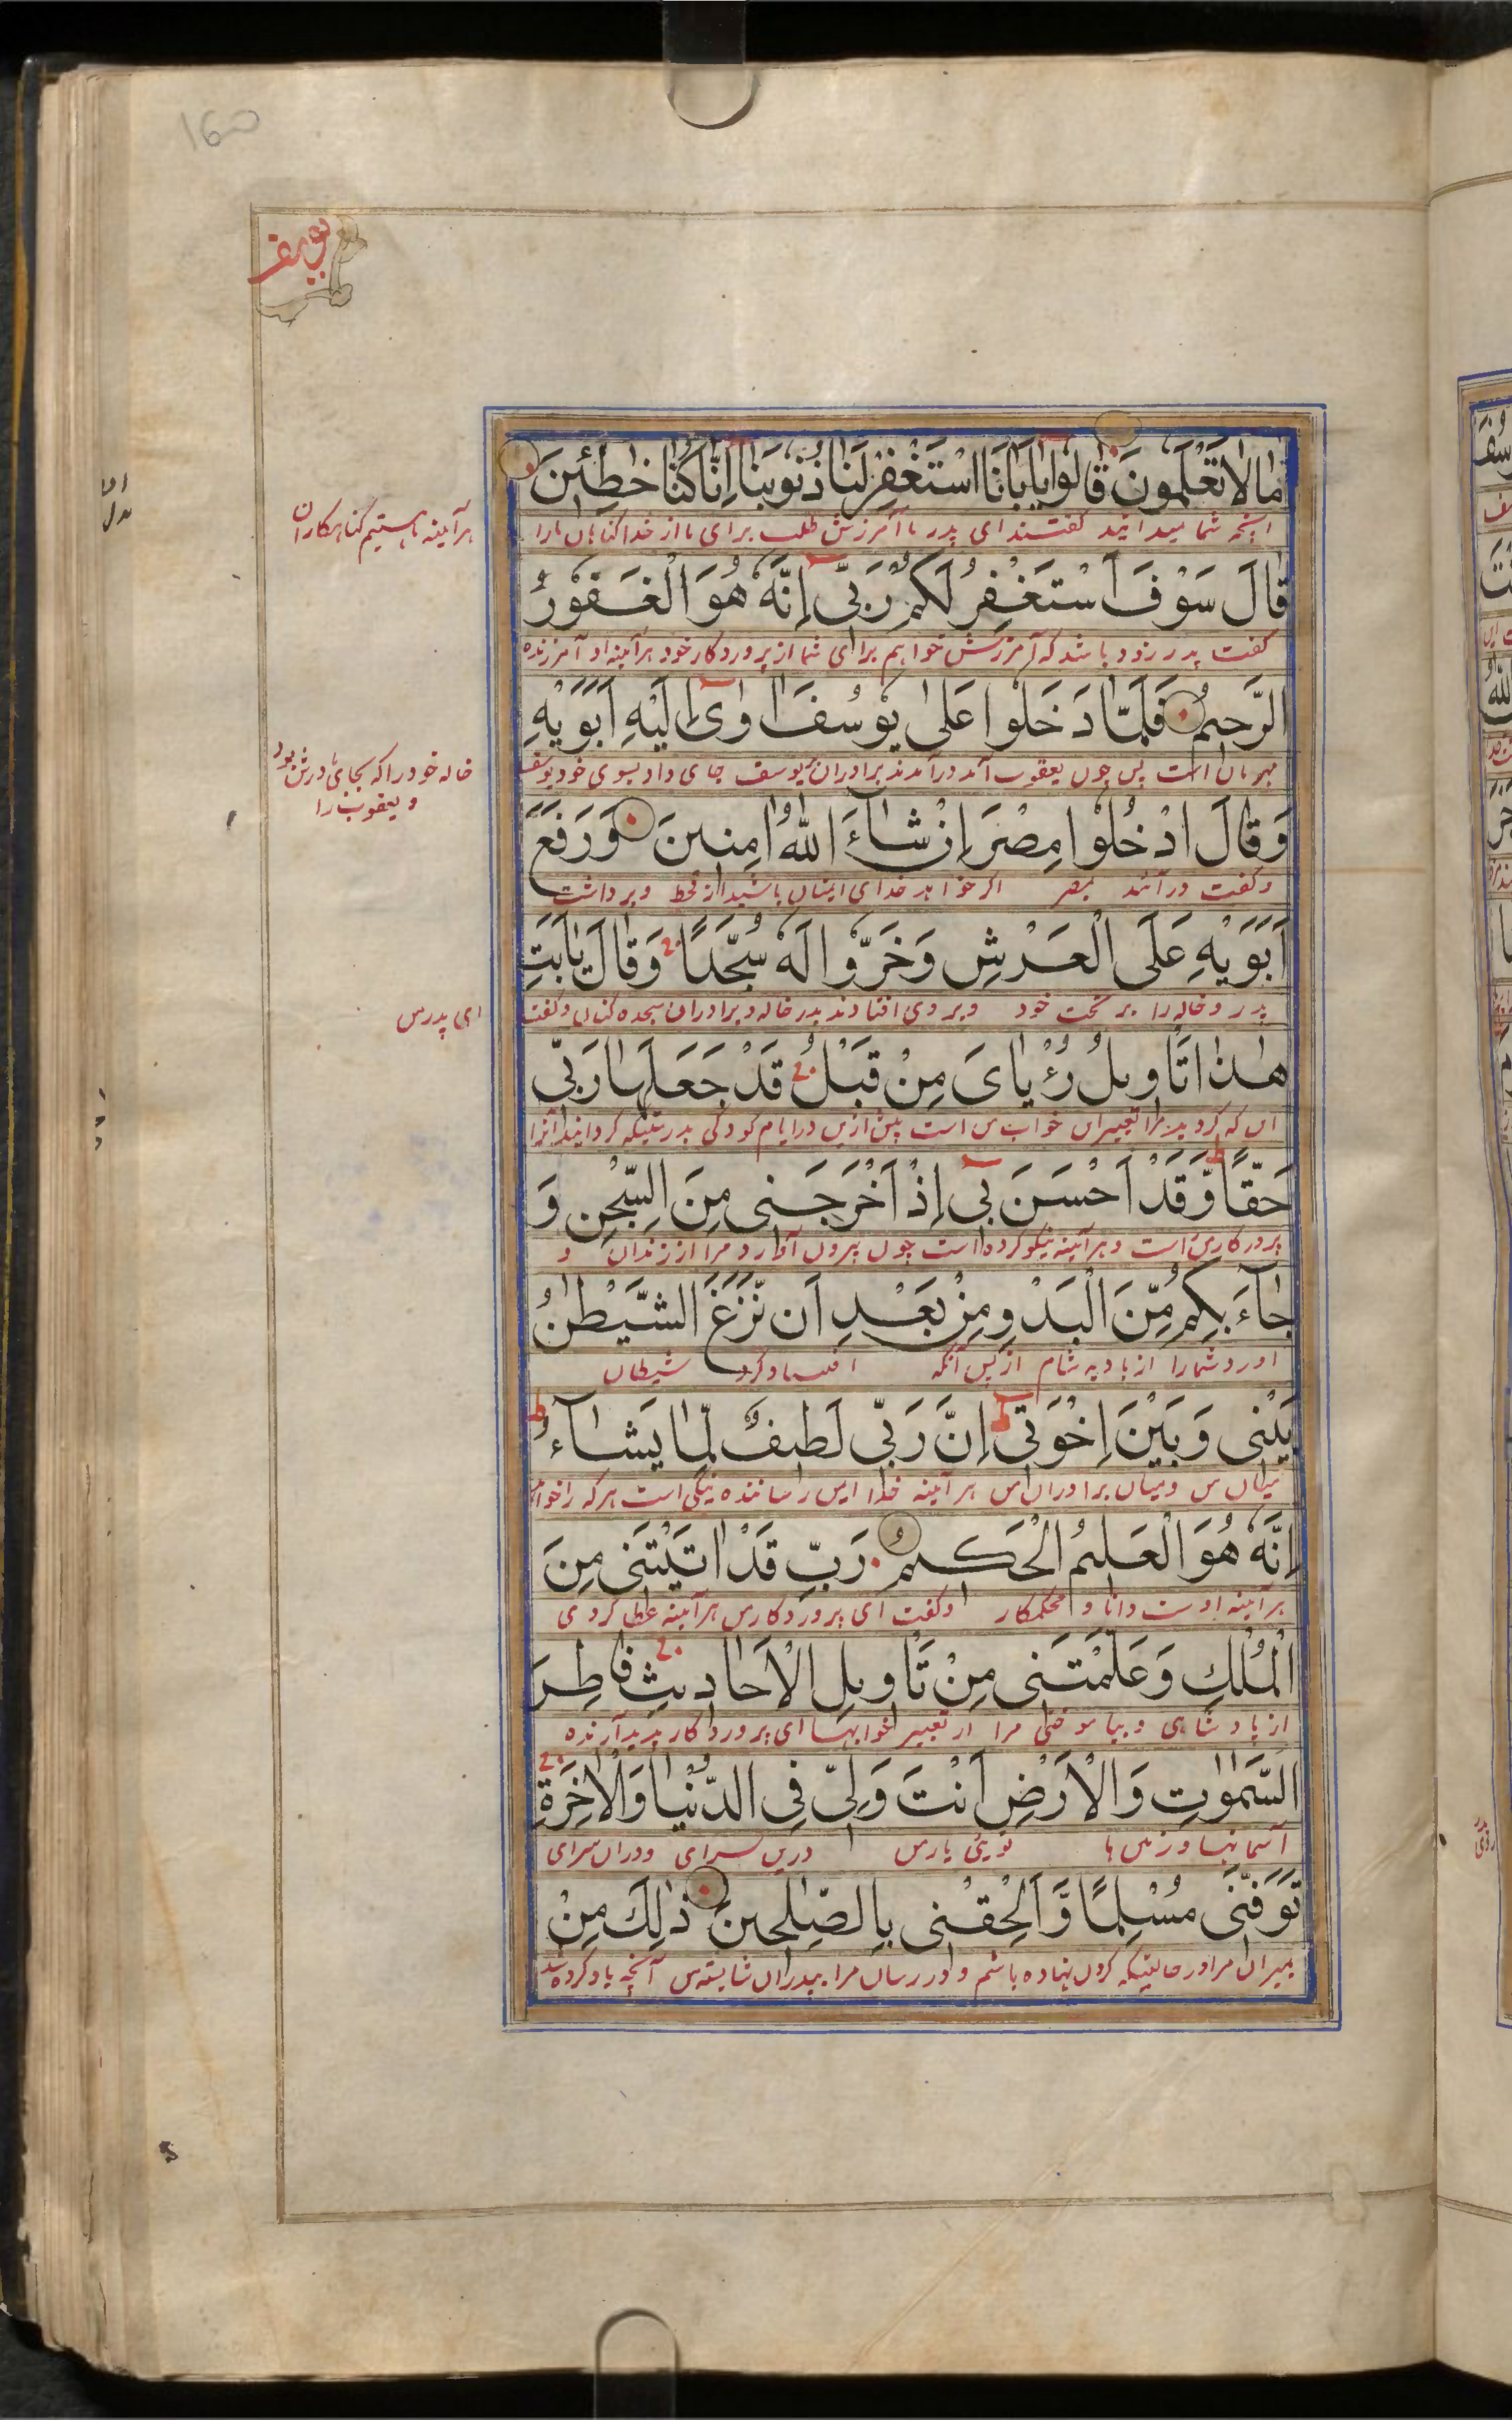 160
یوسف
مَا لَا تَعْلَمُونَ قَالُوا یَا اَبَانَا اسْتَغْفِرْ لَنَا ذُنُوبَنَا اِنَّا كُنَّا خٰطِئِینَ
آنچه شما میدانید گفتند ای پدر ما آمرزش طلب برای ما از خدا گناهان ما را
هرآینه ما هستیم گناهکاران
قَالَ سَوْفَ اَسْتَغْفِرُ لَكُمْ رَبِّی اِنَّهُ هُوَ الْغَفُورُ
گفت پدر زود باشد که آمرزش خواهم برای شما از پروردکار خود هرآینه او آمرزنده
الرَّحِیمُ فَلَمَّا دَخَلُوا عَلٰی یُوسُفَ اٰوٰی اِلَیْهِ اَبَوَیْهِ
مهربان است پس چون یعقوب آمد درآمدند برادران یوسف جای داد بسوی خود یوسف
خاله خود را که بجای مادرش بود
و یعقوب را
وَقَالَ ادْخُلُوا مِصْرَ اِنْ شَآءَ اللّٰهُ اٰمِنِینَ وَرَفَعَ
و گفت درآئید بمصر اگر خواهد خدای ایمنان باشید از قحط و برداشت
اَبَوَیْهِ عَلَی الْعَرْشِ وَخَرُّوا لَهُ سُجَّدًا وَقَالَ یٰاَبَتِ
پدر و خاله را بر تخت خود و بر وی افتادند پدر خاله و برادران سجده کنان و گفت
ای پدر من
هٰذَا تَاْوِیلُ رُءْیَایَ مِنْ قَبْلُ قَدْ جَعَلَهَا رَبِّی
این که کردید مرا تعبیر آن خواب من است پیش ازین در ایام کودکی بدرستیکه کردانید آنرا
حَقًّا وَقَدْ اَحْسَنَ بِی اِذْ اَخْرَجَنِی مِنَ السِّجْنِ وَ
پروردکار من راست و هرآینه نیکو کرده است چون بیرون آورد مرا از زندان و
جَآءَ بِكُمْ مِّنَ الْبَدْوِ مِنْ بَعْدِ اَنْ نَّزَغَ الشَّیْطٰنُ
اورد شما را از بادیه شام از پس آنکه افساد کرد شیطان
بَیْنِی وَبَیْنَ اِخْوَتِی اِنَّ رَبِّی لَطِیفٌ لِّمَا یَشَآءُ
میان من و میان برادران من هرآینه خدا این رساننده نیکی است هر که را خواهد
اِنَّهُ هُوَ الْعَلِیمُ الْحَكِیمُ رَبِّ قَدْ اٰتَیْتَنِی مِنَ
هرآینه اوست دانا و محکمکار و گفت ای پروردکار من هرآینه عطا کردی
الْمُلْكِ وَعَلَّمْتَنِی مِنْ تَاْوِیلِ الْاَحَادِیثِ فَاطِرَ
از پادشاهی و بیاموختی مرا از تعبیر خوابها ای پروردکار پدیدآرنده
السَّمٰوٰتِ وَالْاَرْضِ اَنْتَ وَلِیِّ فِی الدُّنْیَا وَالْاٰخِرَةِ
آسمانها و زمین ها توئی یار من درین سرای و در ان سرای
تَوَفَّنِی مُسْلِمًا وَّاَلْحِقْنِی بِالصّٰلِحِینَ ذٰلِكَ مِنْ
بمیران مرا در حالتیکه کردن نهاده باشم و در رسان مرا بپدران شایسته من آنچه یاد کرده شد